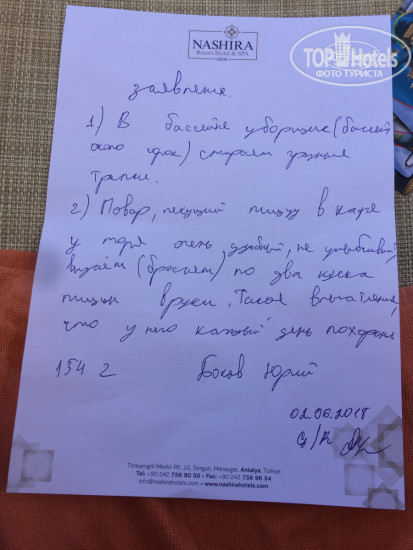 NASHIRA
Resort Hotel & SPA
TOPHotels
ФОТО ТУРИСТА
заявление.
1) В бассейне уборщик (бассейн
около горок) стирает грязные
тряпки.
2) Повар, пекущий пиццу в кафе
у моря очень, не улыбчивый,
выдаёт (бросает) по два куска
пиццы в руки. Такое впечатление,
что у него каждый день похороны
1542 Босов Юрий
02.06.2018
Titreyengol Mevkii PK. 10, Sorgun, Manavgat, Antalya, Türkiye
Tel: +90 242 756 90 50 • Fax: +90 242 756 96 54
info@nashirahotels.com • www.nashirahotels.com